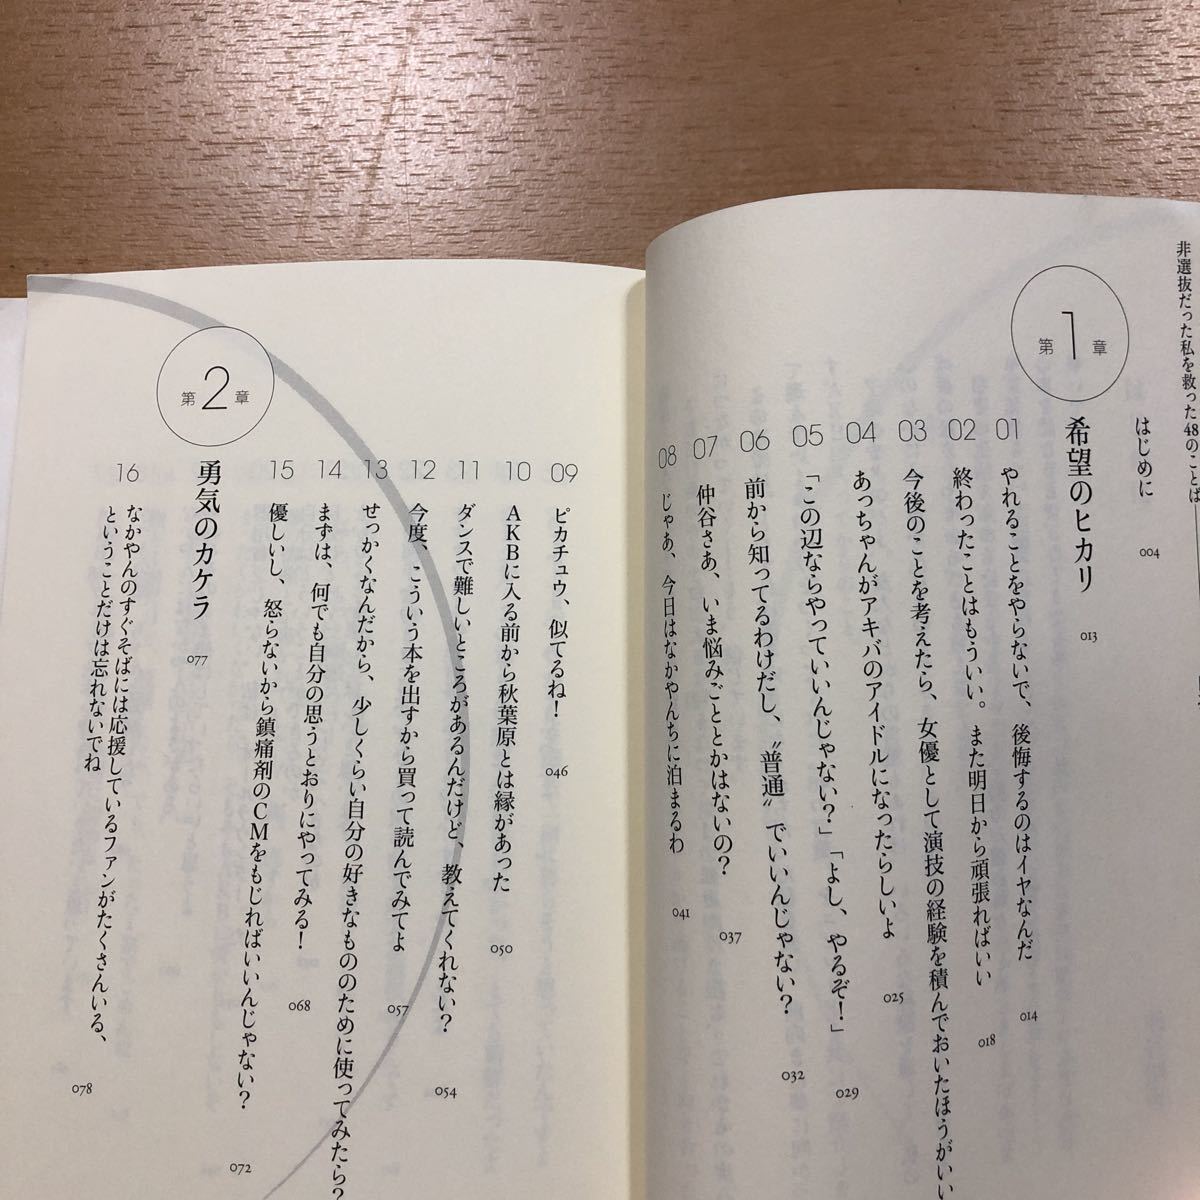 非選抜だった私を救った48のことば
はじめに 004
第1章 希望のヒカリ 013
01 やれることをやらないで、後悔するのはイヤなんだ 014
02 終わったことはもういい。また明日から頑張ればいい 018
03 今後のことを考えたら、女優として演技の経験を積んでおいたほうがいい
04 あっちゃんがアキバのアイドルになったらしいよ 025
05 「この辺ならやっていいんじゃない?」「よし、やるぞ!」 029
06 前から知ってるわけだし、〝普通〟でいいんじゃない? 032
07 仲谷さあ、いま悩みごととかはないの? 037
08 じゃあ、今日はなかやんちに泊まるわ 041
09 ピカチュウ、似てるね! 046
10 AKBに入る前から秋葉原とは縁があった 050
11 ダンスで難しいところがあるんだけど、教えてくれない? 054
12 今度、こういう本を出すから買って読んでみてよ 057
13 せっかくなんだから、少しくらい自分の好きなもののために使ってみたら?
14 まずは、何でも自分の思うとおりにやってみる! 068
15 優しいし、怒らないから鎮痛剤のCMをもじればいいんじゃない? 072
第2章 勇気のカケラ 077
16 なかやんのすぐそばには応援しているファンがたくさんいる、
ということだけは忘れないでね 078